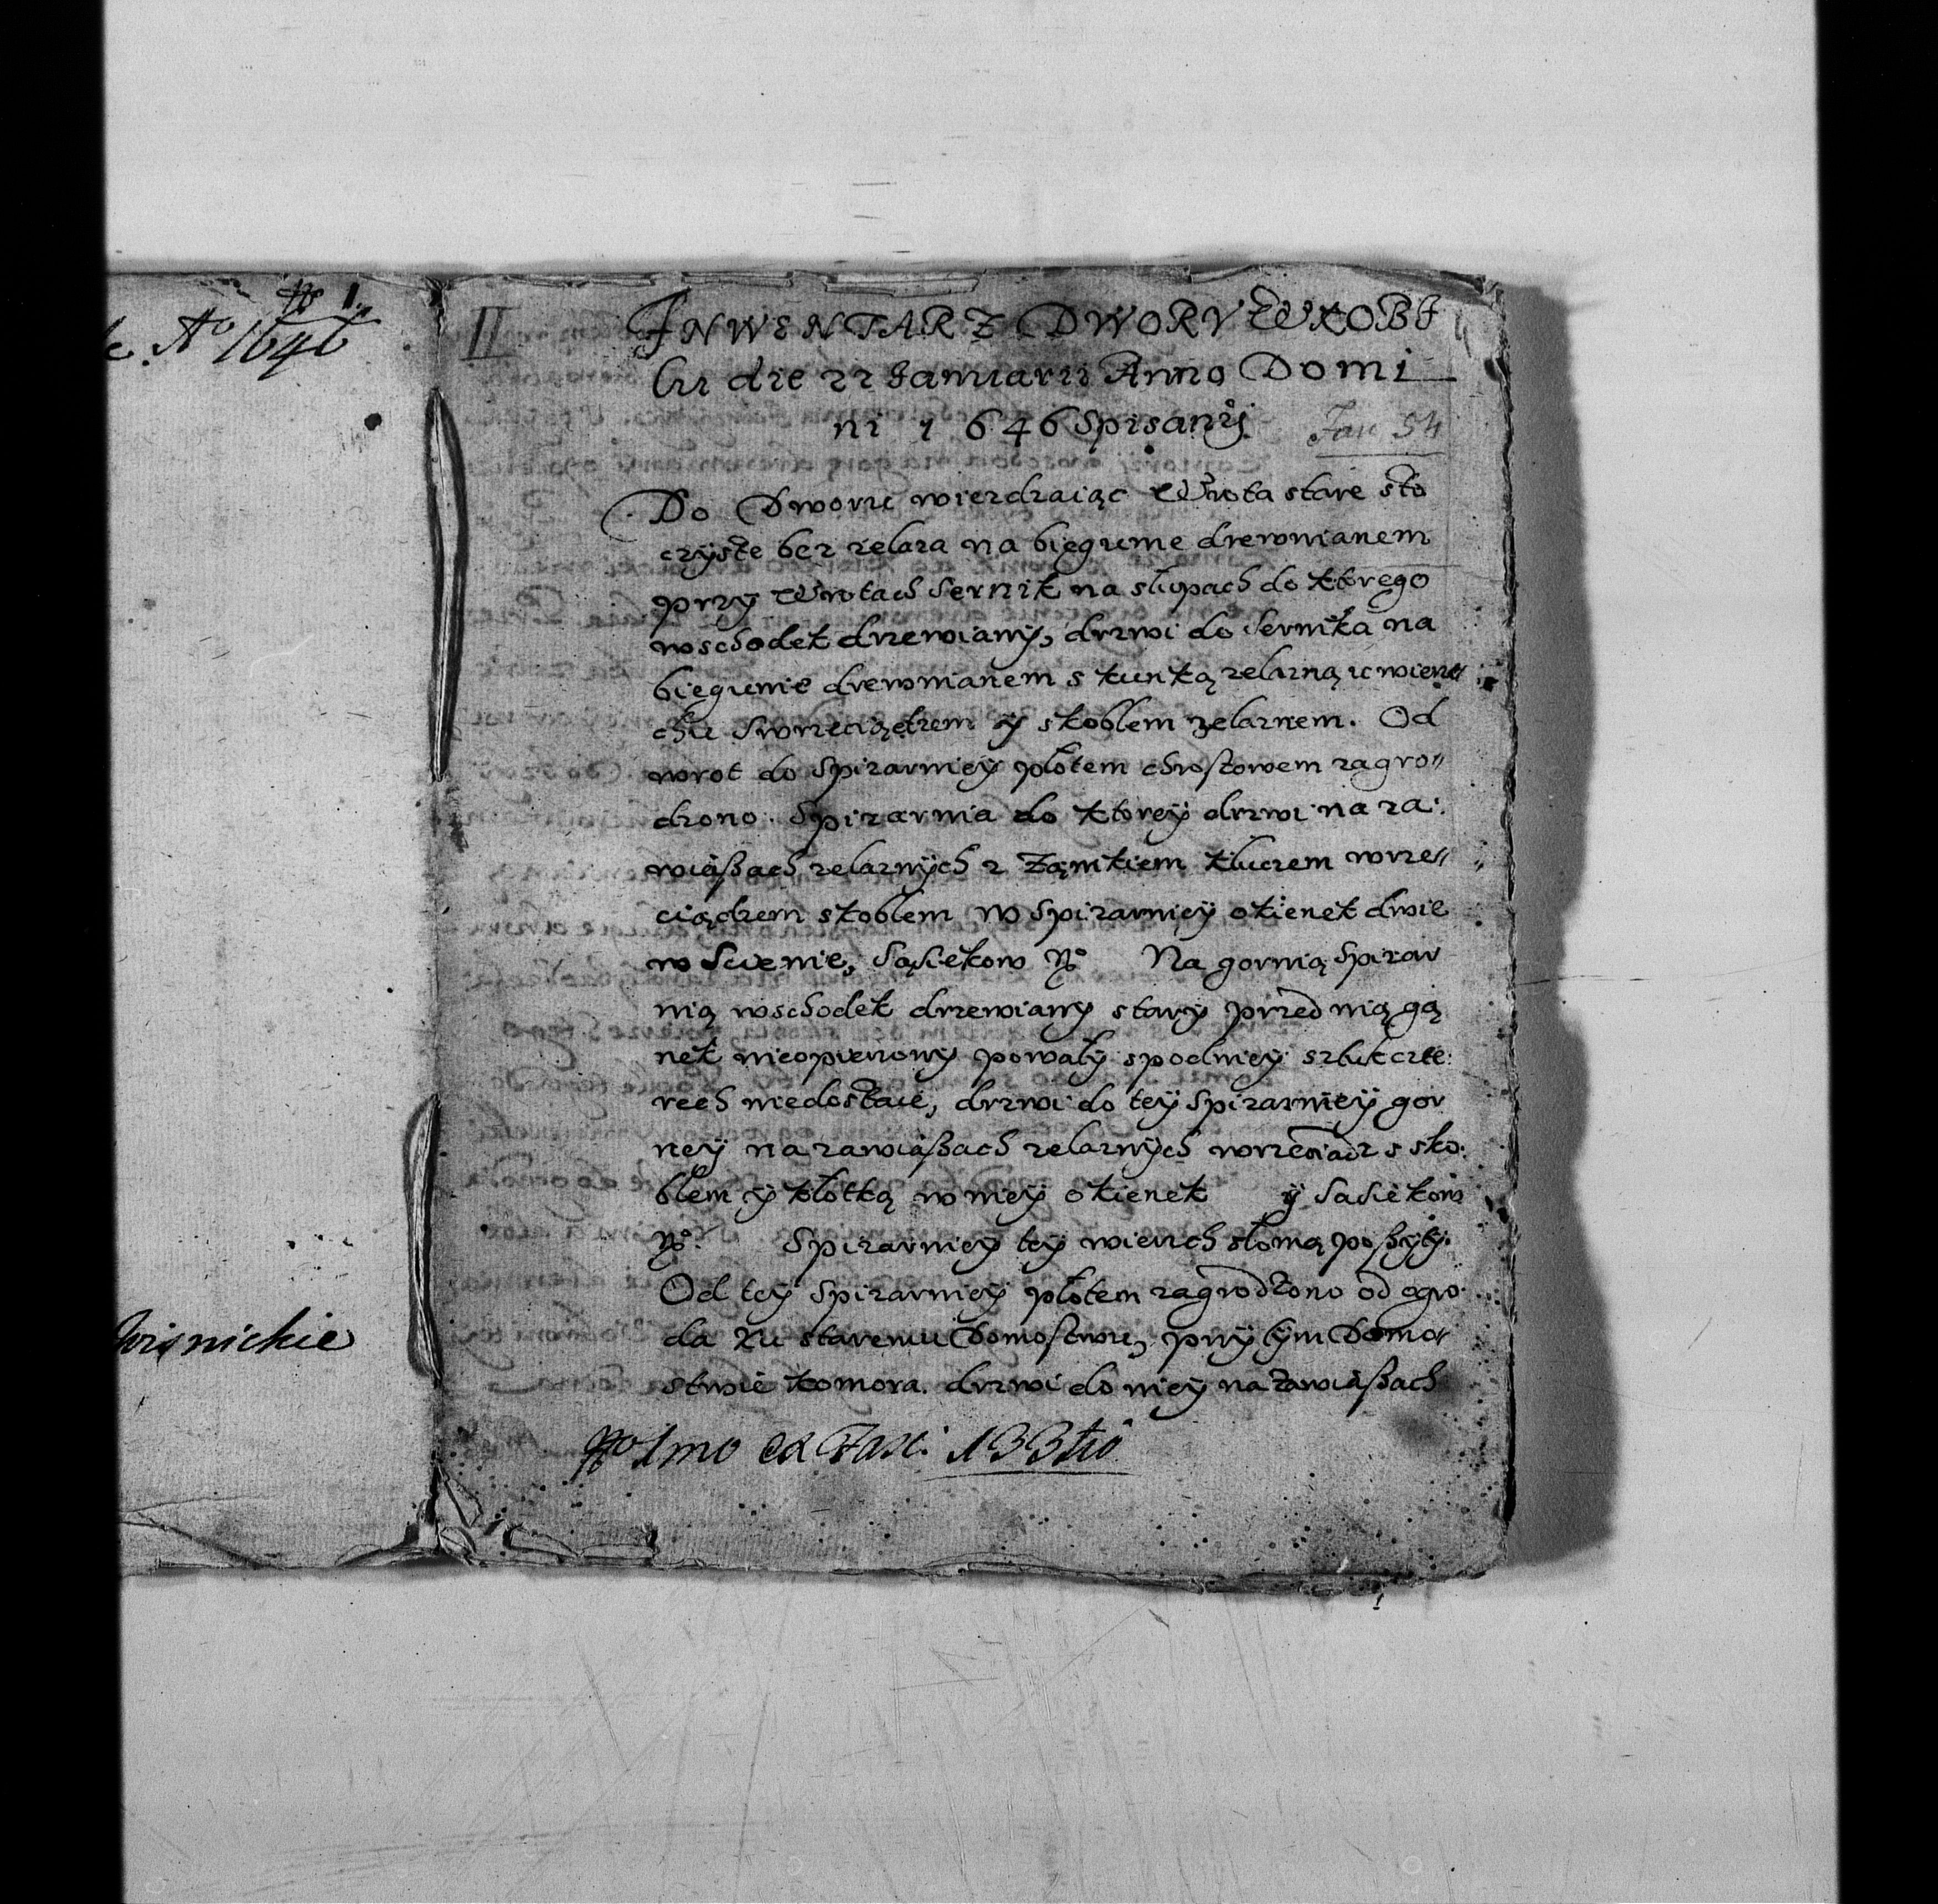 № 1.
A° 1646
wisnickie
II
INWENTARZ DWORV W KOBY
lu die 22 Januarii Anno Domi
ni 1646 Spisany
Fas 54
Do Dworu wiezdzaiąc Wrota stare sto
czyste bez zelaza na biegunie drewnianem
przy Wrotach Sernik na słupach do ktorego
wschodek drzewiany, drzwi do Sernika na
biegunie drewnianem s kunką zelazną u wierz
chu Swrzeciądzem ÿ skoblem zelaznem. Od
wrot do Spizarniey płotem chrostowem zagro
dzono. Spizarnia do ktorey drzwi na za:
wiaßach zelaznych z Zamkiem kluczem wrze
ciądzem skoblem W Spizarniey okienek dwie
w Scienie, Sąsiekow N° Na gornią Spizar
nią wschodek drzewiany stary przed nią gą
nek nieopierzony powały spodniey sztuk czte:
rech niedostaie, drzwi do tey Spizarniey gor
ney na zawiaßach zelaznych wrzeciadz s sko:
blem y kłotką w niey okienek ÿ Sasiekow
N°. Spizarniey tey wierzch słomą poßyty.
Od tey Spizarniey płotem zagrodzono od ogro
da ku staremu Domostwu, przy tym Domo
stwie komora. drzwi do niey na zawiaßach
N° 1mo ex Fasc: 133tio